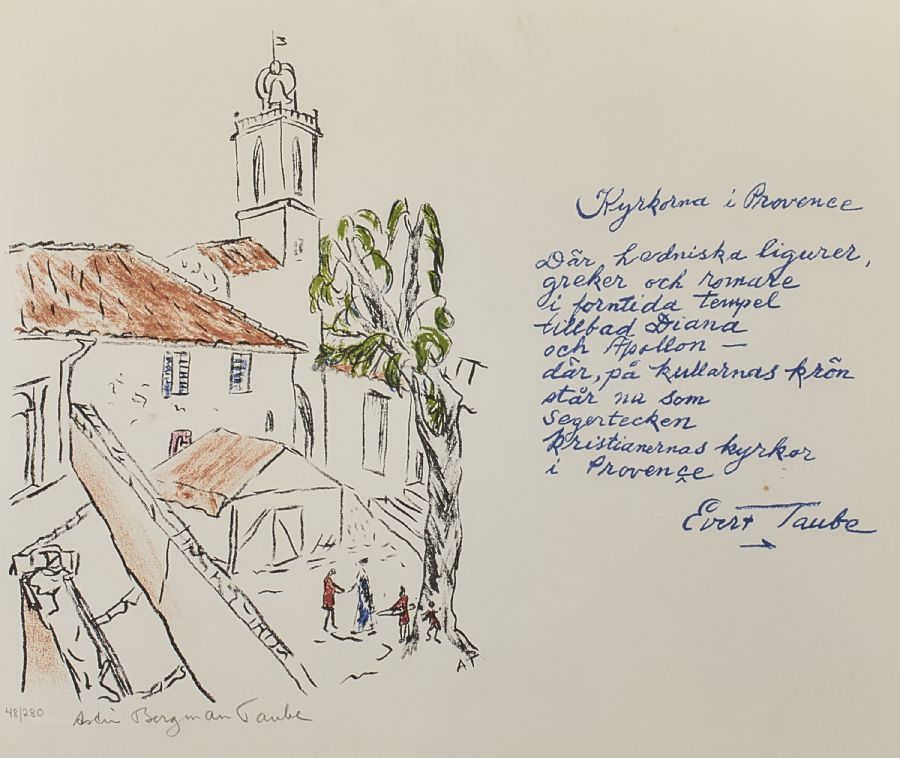 Kyrkorna i Provence
Där, hedniska ligurer,
greker och romare
i forntida tempel
tillbad Diana
och Apollon —
där, på kullarnas krön
står nu som
segertecken
kristianernas kyrkor
i Provence
Evert Taube
AT
48/280 Astri Bergman Taube